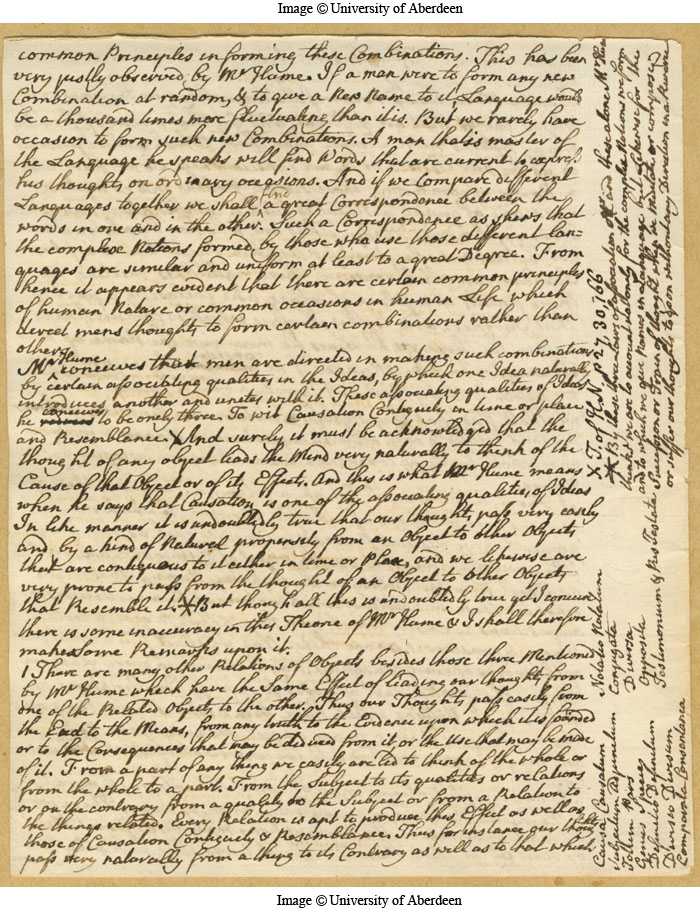 Image © University of Aberdeen
common Principles in forming these Combinations. This has been
very justly observed by Mr Hume. If a man were to form any new
Combination at random, & to give a New Name to it Language would
be a thousand times more fluctuating than it is. But we rarely have
occasion to form such new Combinations. A man that is master of
the Language he speaks will find Words that are current to express
his thoughts on ordinary occasions. And if we compare different
Languages together we shall find a great Correspondence between the
words in one and in the other. Such a Correspondence as shews that
the complex Notions formed by those who use those different Lan-
guages are similar and uniform at least to a great Degree. From
hence it appears evident that there are certain common principles
of human Nature or common occasions in human Life which
direct mens thoughts to form certain combinations rather than
others.
Mr Hume conceives that men are directed in making such combinations
by certain associating qualities in the Ideas, by which one Idea naturally
introduces another and unites with it. These associating qualities of Ideas
he conceives to be only three. To wit Causation Contiguity in time or place
and Resemblance. X And surely it must be acknowledged that the
thought of any object leads the Mind very naturally to think of the
Cause of that Object or of its Effects. And this is what Mr Hume means
when he says that Causation is one of the associating qualities of Ideas
In like manner it is undoubtedly true that our thoughts pass very easily
and by a kind of Natural propensity from an Object to other Objects
that are contiguous to it either in time or Place, and we likewise are
very prone to pass from the thought of an Object to other Objects
that Resemble it. X But though all this is undoubtedly true yet I conceive
there is some inaccuracy in this Theorie of Mr Hume & I shall therefore
make some Remarks upon it.
1 There are many other Relations of Objects besides those three Mentioned
by Mr Hume which have the Same Effect of leading our thoughts from
one of the Related Objects to the other. Thus our Thoughts pass easily from
the End to the Means, from any truth to the Evidence upon which it is founded
or to the Consequences that may be deduced from it, or the Use that may be made
of it. From a part of any thing we easily are led to think of the whole or
from the whole to a part. From the Subject to its qualities or relations
or on the contrary from a quality to the Subject or from a Relation to
the things related. Every Relation is apt to produce this Effect as well as
those of Causation Contiguity & Resemblance. Thus for instance our thoughts
pass very naturally from a thing to its Contrary as well as to that which
X T. of H. N. P 27. 30. 166
X By these three Laws of association and these alone Mr Hume
thinks we are to account not only for the complex Notions we form
and to which we give Names in Language but Likewise for the
Succession or Train of thought when we Meditate or compose
or suffer our thoughts to from without any Direction in a Reverie
Causa Causatum Notatio Notatum
Subjectum Adjunctum Conjugata
Totum Pars Diversa
Genus Species Opposita
Definitio Definitum Testimonium & Res Testata
Divisio Divisum
Comparata Consentanea
Image © University of Aberdeen